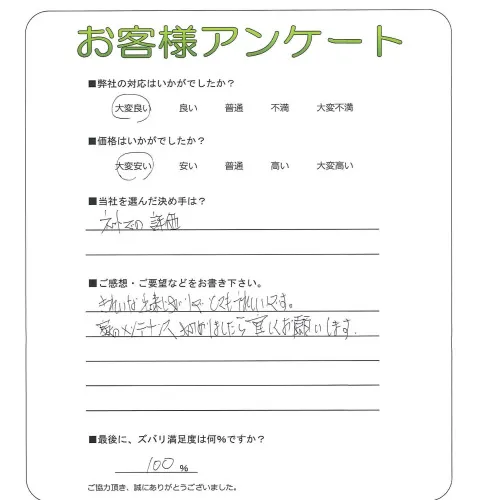 お客様アンケート
■弊社の対応はいかがでしたか？
大変良い 良い 普通 不満 大変不満
■価格はいかがでしたか？
大変安い 安い 普通 高い 大変高い
■当社を選んだ決め手は？
ネットでの 評価
■ご感想・ご要望などをお書き下さい。
きれいな とても うれしいです。
家のメンテナンス ましたら宜しくお願いします.
■最後に、ズバリ満足度は何%ですか？
100 %
ご協力頂き、誠にありがとうございました。